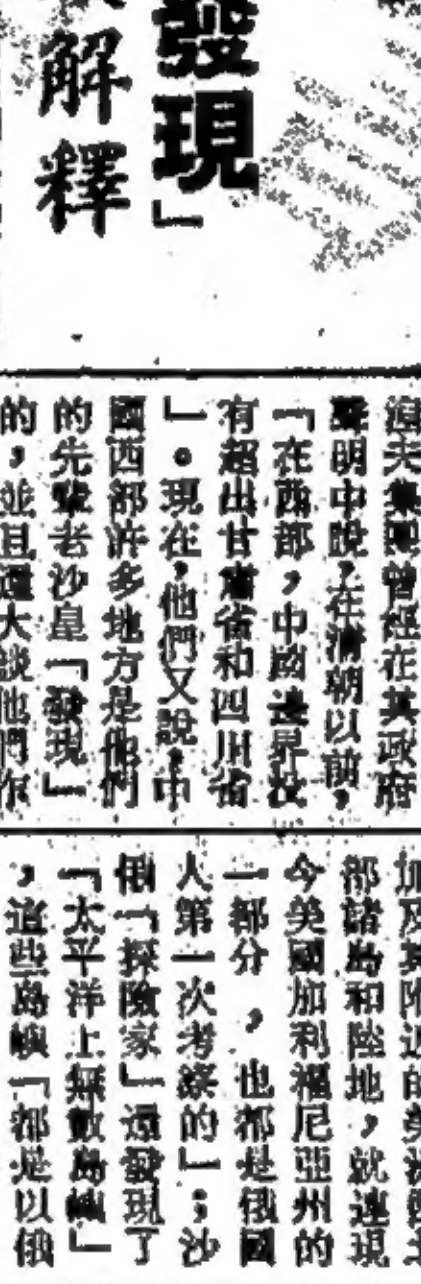 發現」
解釋
涅夫集團曾經在其政府
聲明中說，在清朝以前，
「在西部，中國邊界沒
有超出甘肅省和四川省
」。現在，他們又說，中
國西部許多地方是他們
的先輩老沙皇「發現」
的，並且還大談他們作
加及其附近的美洲西北
部諸島和陸地，就連現
今美國加利福尼亞州的
一部分，也都是俄國
人第一次考察的」；沙
俄「探險家」還發現了
「太平洋上無數島嶼」
，這些島嶼「都是以俄